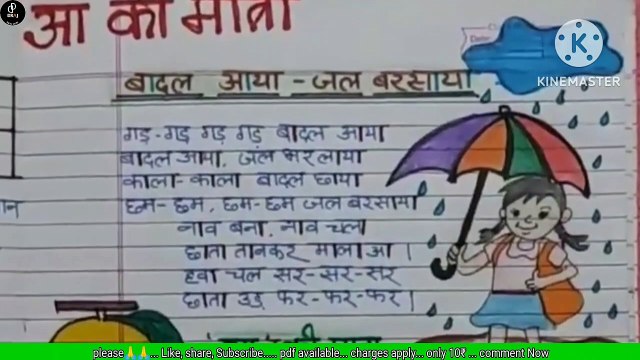 आ की मात्रा
KINEMASTER
बादल आया - जल बरसाया
गड़-गड़ गड़ गड़ बादल आया
बादल आया, जल भर लाया
काला-काला बादल छाया
छम-छम, छम-छम जल बरसाया
नाव बना, नाव चला
छाता तानकर माला आ।
हवा चल सर-सर-सर
छाता उड़ फर-फर-फर।
please🙏🙏... Like, share, Subscribe..... pdf available... charges apply... only 10₹ ... comment Now